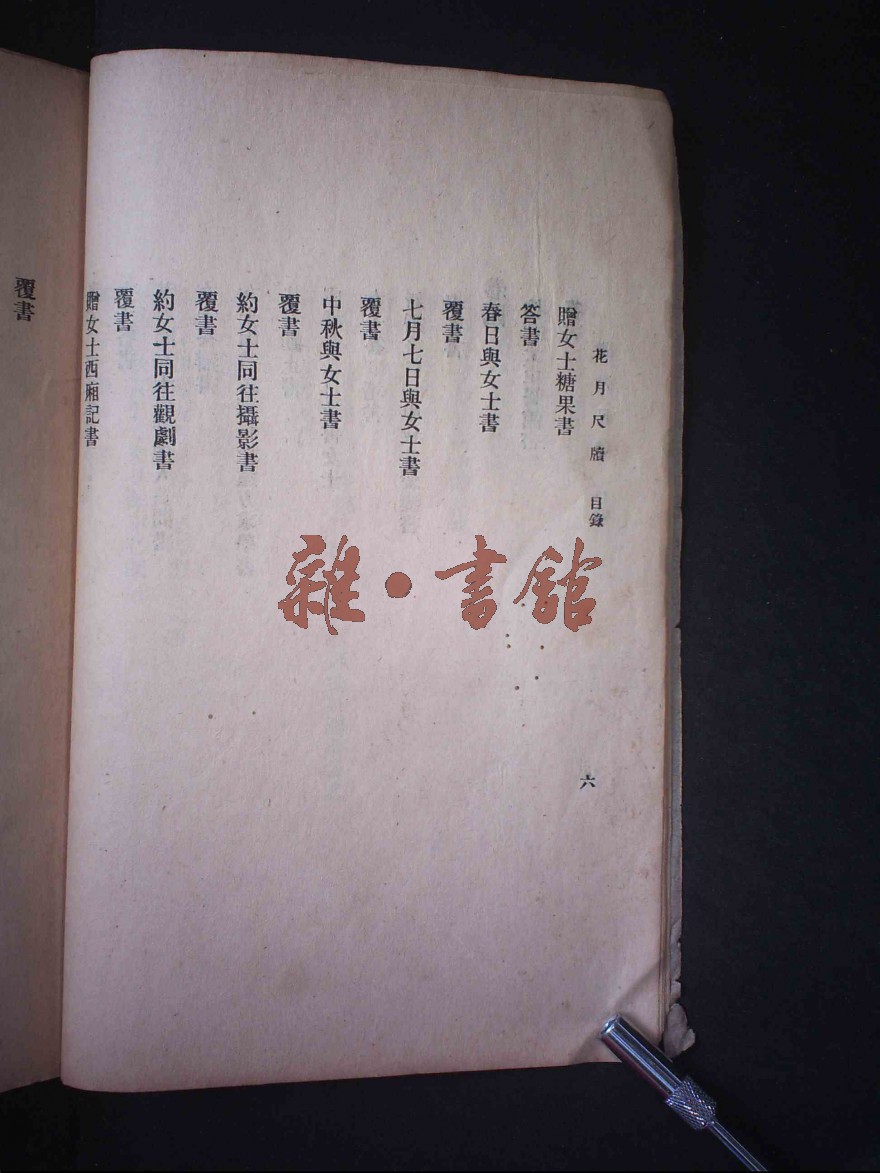 花月尺牘 目錄
六
贈女士糖果書
答書
春日與女士書
覆書
七月七日與女士書
覆書
中秋與女士書
覆書
約女士同往攝影書
覆書
約女士同往觀劇書
覆書
贈女士西廂記書
覆書
雜·書館